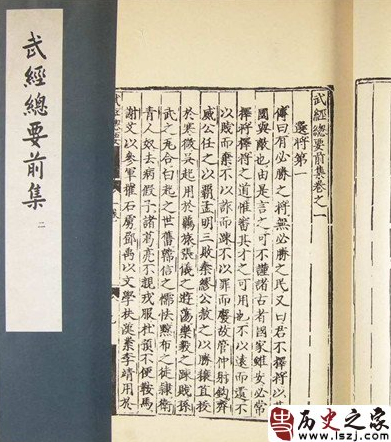 武經總要前集
二
武經總要前集卷之一
選將第一
傳曰有必勝之將無必勝之民又曰君不擇將以其
國與敵也由是言之可不謹諸古者國家雖安必常
擇將擇將之道惟審其才之可用也不以遠而遺不
以賤而棄不以詐而疎不以罪而廢故管仲射鈎齊
威公任之以霸孟明三敗秦繆公赦之以勝穰苴拔
於寒微吳起用於羈旅張儀之遊蕩樂毅之踈賤孫
武之瓦合白起之世舊韓信之懦怯黥布之徒隸衛
青人奴去病假子諸葛亮不親戎服杜預不便鞍馬
謝艾以參軍摧石虜鄧禹以文學扶漢業李靖用於
武經總要
历史之家
www.lszj.com